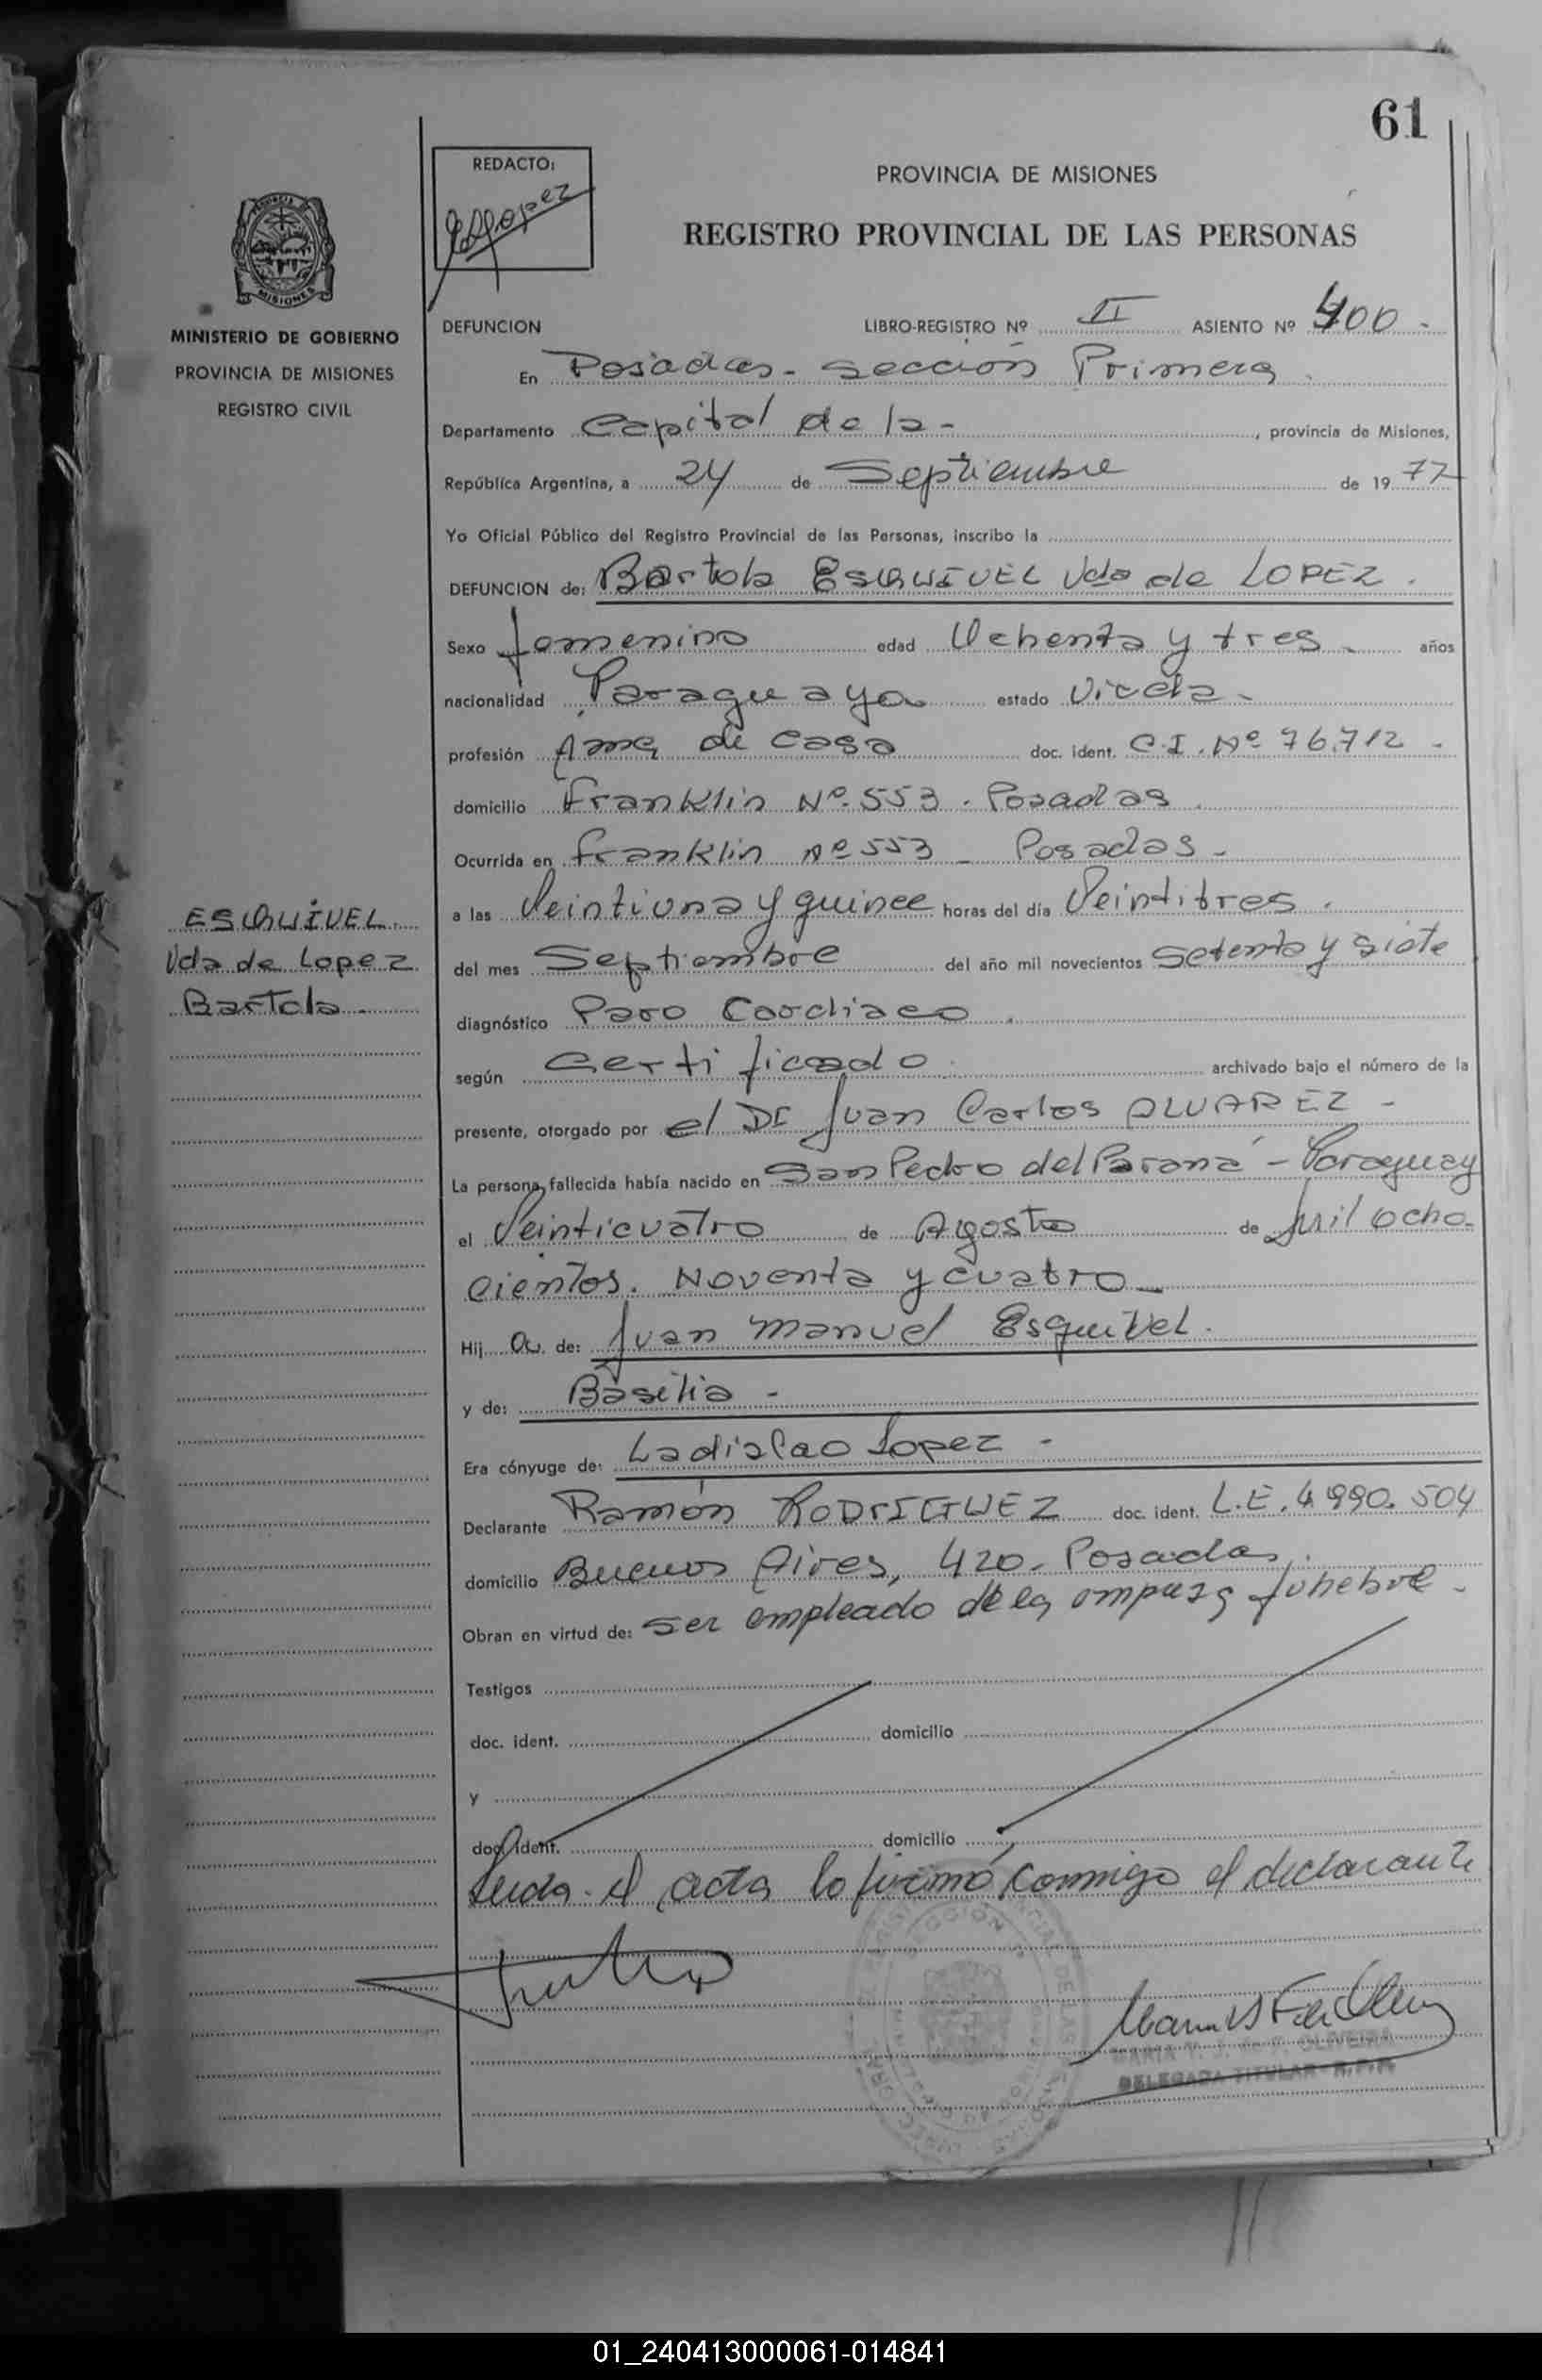 61
REDACTO:
PROVINCIA DE MISIONES
REGISTRO PROVINCIAL DE LAS PERSONAS
MISIONES
MINISTERIO DE GOBIERNO
PROVINCIA DE MISIONES
REGISTRO CIVIL
DEFUNCION LIBRO-REGISTRO Nº II ASIENTO Nº 400 -
En Posadas - sección Primera
Departamento Capital de la - , provincia de Misiones,
República Argentina, a 24 de Septiembre de 19 77
Yo Oficial Público del Registro Provincial de las Personas, inscribo la
DEFUNCION de: Bartola ESQUIVEL Vda de LOPEZ.
Sexo femenino edad Ochenta y tres - años
nacionalidad Paraguaya estado Viuda -
profesión Ama de casa doc. ident. C.I. Nº 76.712 -
domicilio Franklin Nº 553 - Posadas
Ocurrida en Franklin Nº 553 - Posadas -
a las Veintiuna y quince horas del día Veintitres.
del mes Septiembre del año mil novecientos setenta y siete
diagnóstico Paro Cardiaco.
según Certificado archivado bajo el número de la
presente, otorgado por el Dr Juan Carlos ALVAREZ -
La persona fallecida había nacido en San Pedro del Paraná - Paraguay
el Veinticuatro de Agosto de Mil ocho
cientos. Noventa y cuatro -
Hij a de: Juan Manuel Esquivel.
y de: Basilia -
Era cónyuge de: Ladislao Lopez -
Declarante Ramón RODRIGUEZ doc. ident. L.E. 4.990.504
domicilio Buenos Aires, 420 - Posadas.
Obran en virtud de: ser empleado de la empresa funebre -
Testigos
doc. ident. domicilio
y
doc. ident. domicilio
Leida el acta la firmó conmigo el declarante
MARIA OLIVEIRA
DELEGADA TITULAR R.P.P.
ESQUIVEL
Vda de Lopez
Bartola
01_240413000061-014841